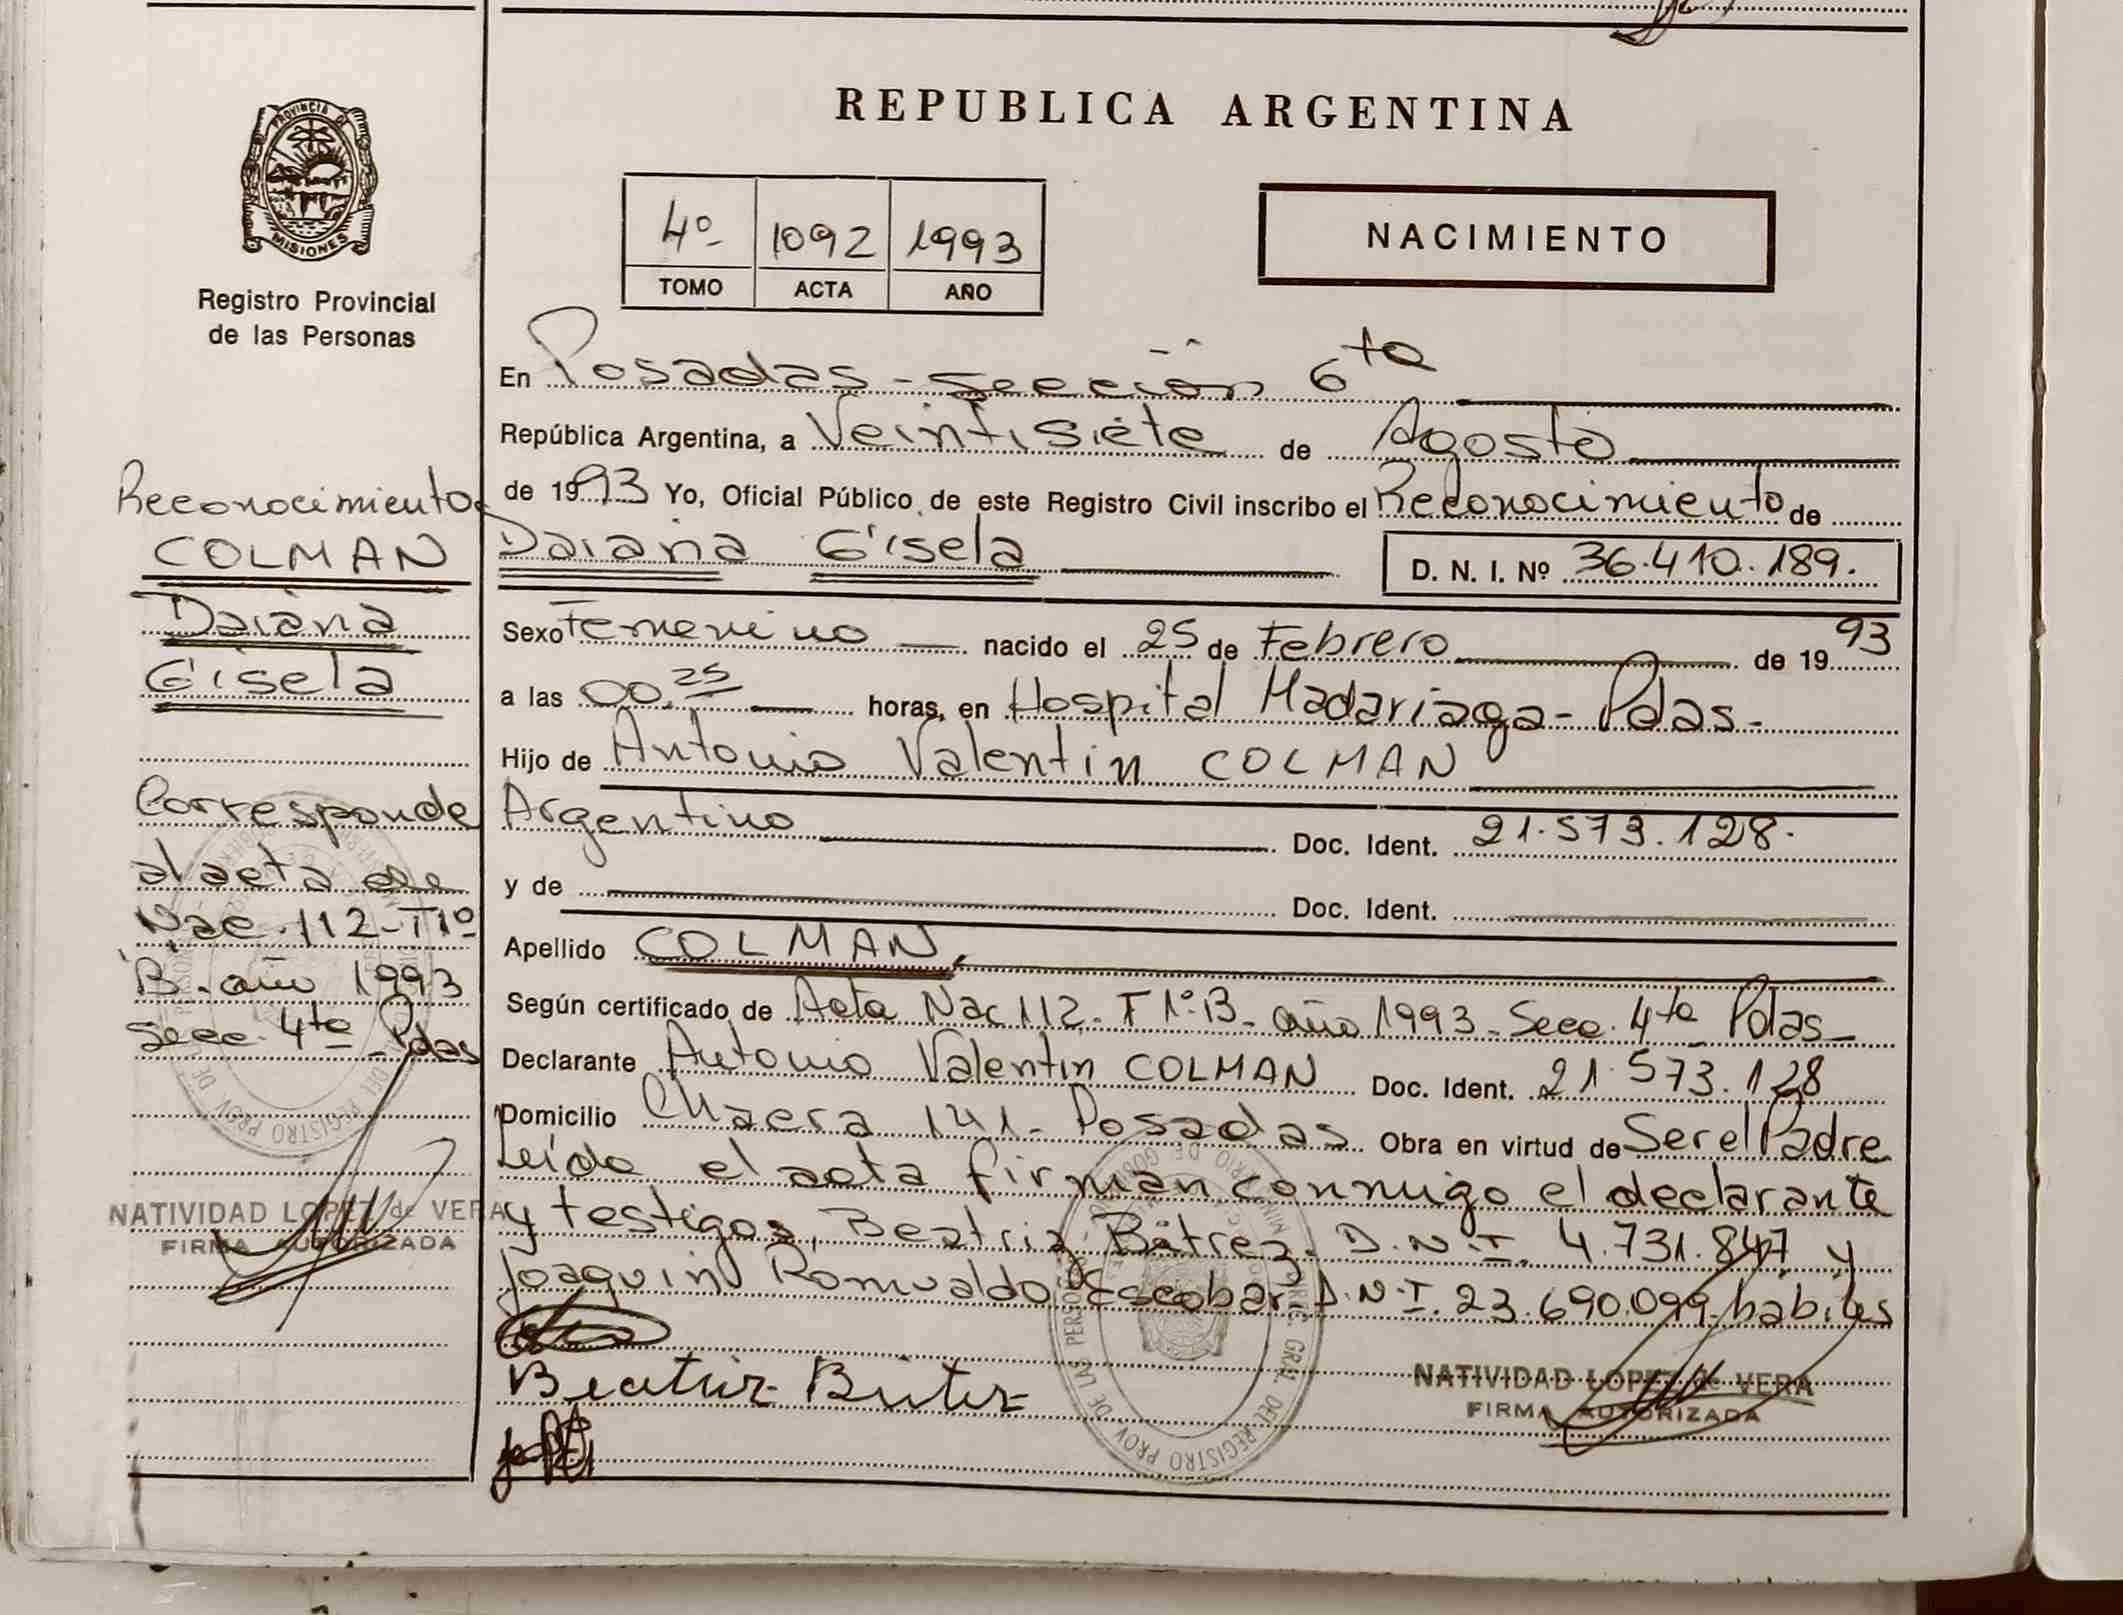 REPUBLICA ARGENTINA
PROVINCIA DE
MISIONES
Registro Provincial
de las Personas
4º 1092 1993
TOMO ACTA AÑO
NACIMIENTO
Reconocimiento
COLMAN
Daiana
Gisela
Corresponde
al acta de
Nac. 112-T1º
B. año 1993
Secc. 4ta Pdas
NATIVIDAD LOPEZ de VERA
FIRMA AUTORIZADA
En Posadas - Sección 6ta
República Argentina, a Veintisiete de Agosto
de 1993 Yo, Oficial Público de este Registro Civil inscribo el Reconocimiento de
Daiana Gisela D. N. I. Nº 36.410.189.
Sexo Femenino nacido el 25 de Febrero de 1993
a las 00.25 horas, en Hospital Madariaga - Pdas -
Hijo de Antonio Valentin COLMAN
Argentino Doc. Ident. 21.573.128.
y de Doc. Ident.
Apellido COLMAN.
Según certificado de Acta Nac 112 - T 1º B - año 1993 - Secc. 4ta Pdas -
Declarante Antonio Valentin COLMAN Doc. Ident. 21.573.128
Domicilio Chacra 141 - Posadas Obra en virtud de Ser el Padre
Leído el acta firman conmigo el declarante
y testigos, Beatriz D.N.I. 4.731.847 y
Joaquin Romualdo Escobar D.N.I. 23.690.099 habiles
Beatriz
NATIVIDAD LOPEZ de VERA
FIRMA AUTORIZADA